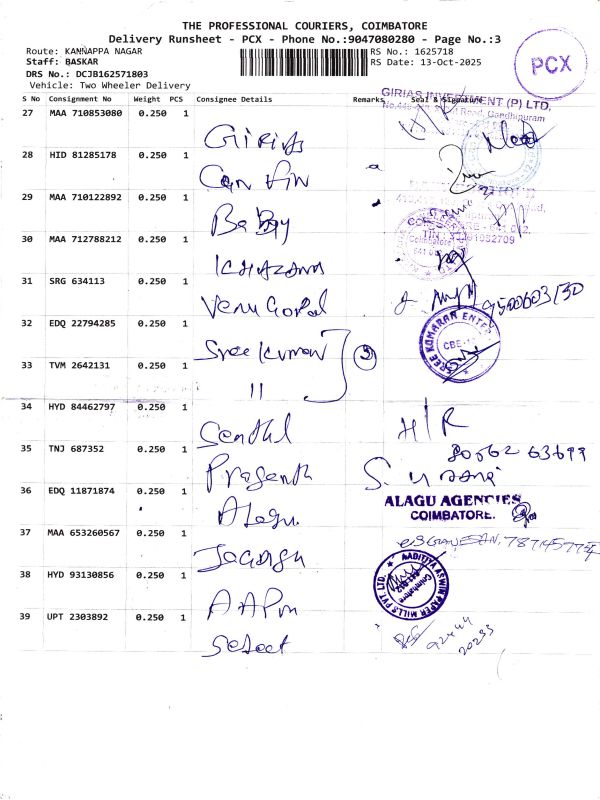 THE PROFESSIONAL COURIERS, COIMBATORE
Delivery Runsheet - PCX - Phone No.:9047080280 - Page No.:3
Route: KANNAPPA NAGAR RS No.: 1625718
Staff: BASKAR RS Date: 13-Oct-2025
DRS No.: DCJB162571803
Vehicle: Two Wheeler Delivery
PCX
S No Consignment No Weight PCS Consignee Details Remarks Seal & Signature
GIRIAS INVESTMENT (P) LTD,
27 MAA 710853080 0.250 1 Girias
28 HID 81285178 0.250 1 Can Fin
29 MAA 710122892 0.250 1 Baby
30 MAA 712788212 0.250 1 Khazana
31 SRG 634113 0.250 1 Venu Gopal
32 EDQ 22794285 0.250 1 Sree Kumaran
SREE KUMARAN ENTER
CBE-
33 TVM 2642131 0.250 1 "
34 HYD 84462797 0.250 1 Senthil H/R
80562 63699
35 TNJ 687352 0.250 1 Prasanth
36 EDQ 11871874 0.250 1 Alagu
ALAGU AGENCIES
COIMBATORE.
37 MAA 653260567 0.250 1
38 HYD 93130856 0.250 1 AAPM
AADITIYA ASWIN PAPER MILLS PVT. LTD.
Coimbatore
39 UPT 2303892 0.250 1 Select
92444
20233